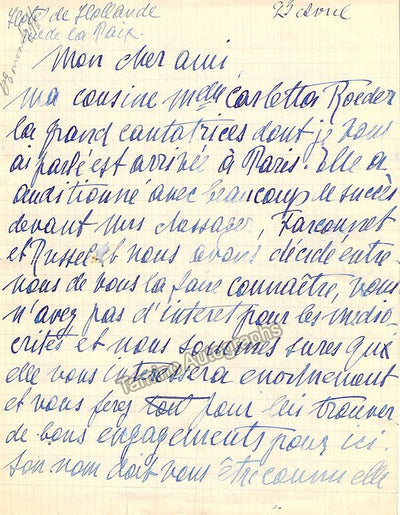 Hotel de Hollande
rue de la Paix.
25 Avril
Mon cher ami,
ma cousine Melle Carlotta Roeder
la grand cantatrices dont je vous
ai parlé est arrivée à Paris. Elle a
auditionné avec beaucoup de succès
devant Mrs Messager, Farconnet
et Russel et nous avons décidé entre
nous de vous la faire connaître, vous
n'avez pas d'interet pour les médio-
crités et nous sommes sures que
elle vous interessera enormement
et vous ferez tout pour lui trouver
de bons engagements pour ici.
Son nom doit vous être connu elle
Tamino Autographs